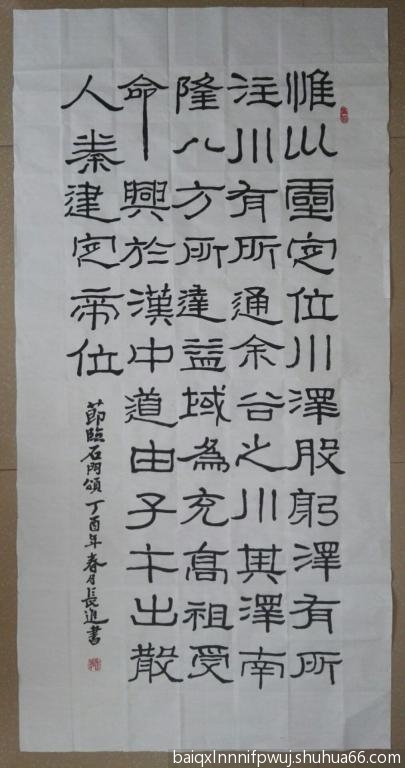 惟以靈定位川澤股躬澤有所
注川有所通余谷之川其澤南
隆八方所達益域為充高祖受
命興於漢中道由子午出散
人秦建定帝位
節臨石門頌丁酉年春月長進書
baiqxlnnnifpwuj.shuhua66.com